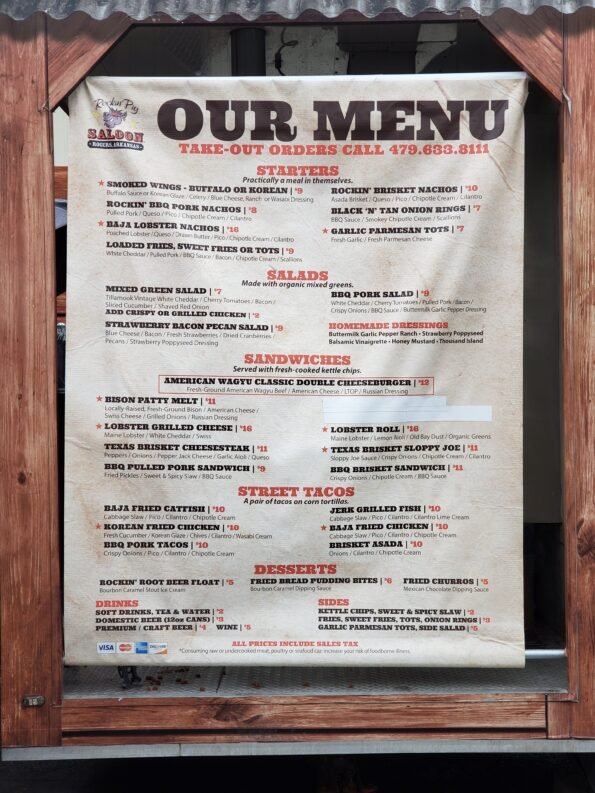 Rockin' Pig
SALOON
ROGERS, ARKANSAS
OUR MENU
TAKE-OUT ORDERS CALL 479.633.8111
STARTERS
Practically a meal in themselves.
★ SMOKED WINGS - BUFFALO OR KOREAN | $9
Buffalo Sauce or Korean Glaze / Celery / Blue Cheese, Ranch or Wasabi Dressing
ROCKIN' BBQ PORK NACHOS | $8
Pulled Pork / Queso / Pico / Chipotle Cream / Cilantro
★ BAJA LOBSTER NACHOS | $16
Poached Lobster / Queso / Drawn Butter / Pico / Chipotle Cream / Cilantro
LOADED FRIES, SWEET FRIES OR TOTS | $9
White Cheddar / Pulled Pork / BBQ Sauce / Bacon / Chipotle Cream / Scallions
ROCKIN' BRISKET NACHOS | $10
Asada Brisket / Queso / Pico / Chipotle Cream / Cilantro
BLACK 'N' TAN ONION RINGS | $7
BBQ Sauce / Smokey Chipotle Cream / Scallions
★ GARLIC PARMESAN TOTS | $7
Fresh Garlic / Fresh Parmesan Cheese
SALADS
Made with organic mixed greens.
MIXED GREEN SALAD | $7
Tillamook Vintage White Cheddar / Cherry Tomatoes / Bacon /
Sliced Cucumber / Shaved Red Onion
ADD CRISPY OR GRILLED CHICKEN | $2
STRAWBERRY BACON PECAN SALAD | $9
Blue Cheese / Bacon / Fresh Strawberries / Dried Cranberries /
Pecans / Strawberry Poppyseed Dressing
BBQ PORK SALAD | $9
White Cheddar / Cherry Tomatoes / Pulled Pork / Bacon /
Crispy Onions / BBQ Sauce / Buttermilk Garlic Pepper Dressing
HOMEMADE DRESSINGS
Buttermilk Garlic Pepper Ranch • Strawberry Poppyseed
Balsamic Vinaigrette • Honey Mustard • Thousand Island
SANDWICHES
Served with fresh-cooked kettle chips.
AMERICAN WAGYU CLASSIC DOUBLE CHEESEBURGER | $12
Fresh-Ground American Wagyu Beef / American Cheese / LTOP / Russian Dressing
★ BISON PATTY MELT | $11
Locally-Raised, Fresh-Ground Bison / American Cheese /
Swiss Cheese / Grilled Onions / Russian Dressing
★ LOBSTER GRILLED CHEESE | $16
Maine Lobster / White Cheddar / Swiss
TEXAS BRISKET CHEESESTEAK | $11
Peppers / Onions / Pepper Jack Cheese / Garlic Aioli / Queso
BBQ PULLED PORK SANDWICH | $9
Fried Pickles / Sweet & Spicy Slaw / BBQ Sauce
★ LOBSTER ROLL | $16
Maine Lobster / Lemon Aioli / Old Bay Dust / Organic Greens
★ TEXAS BRISKET SLOPPY JOE | $11
Sloppy Joe Sauce / Crispy Onions / Chipotle Cream / Cilantro
BBQ BRISKET SANDWICH | $11
Crispy Onions / Chipotle Cream / BBQ Sauce
STREET TACOS
A pair of tacos on corn tortillas.
BAJA FRIED CATFISH | $10
Cabbage Slaw / Pico / Cilantro / Chipotle Cream
★ KOREAN FRIED CHICKEN | $10
Fresh Cucumber / Korean Glaze / Chives / Cilantro / Wasabi Cream
BBQ PORK TACOS | $10
Crispy Onions / Pico / Cilantro / Chipotle Cream
JERK GRILLED FISH | $10
Cabbage Slaw / Pico / Cilantro / Cilantro Lime Cream
★ BAJA FRIED CHICKEN | $10
Cabbage Slaw / Pico / Cilantro / Chipotle Cream
BRISKET ASADA | $10
Onions / Cilantro / Chipotle Cream
DESSERTS
ROCKIN' ROOT BEER FLOAT | $5
Bourbon Caramel Stout Ice Cream
FRIED BREAD PUDDING BITES | $6
Bourbon Caramel Dipping Sauce
FRIED CHURROS | $5
Mexican Chocolate Dipping Sauce
DRINKS
SOFT DRINKS, TEA & WATER | $2
DOMESTIC BEER (12oz CANS) | $3
PREMIUM / CRAFT BEER | $4 WINE | $5
SIDES
KETTLE CHIPS, SWEET & SPICY SLAW | $2
FRIES, SWEET FRIES, TOTS, ONION RINGS | $3
GARLIC PARMESAN TOTS, SIDE SALAD | $5
VISA
DISCOVER
ALL PRICES INCLUDE SALES TAX
*Consuming raw or undercooked meat, poultry or seafood can increase your risk of foodborne illness.